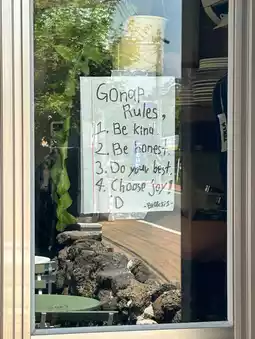 Gonap
Rules,
1. Be kind
2. Be honest.
3. Do your best.
4. Choose joy!
D